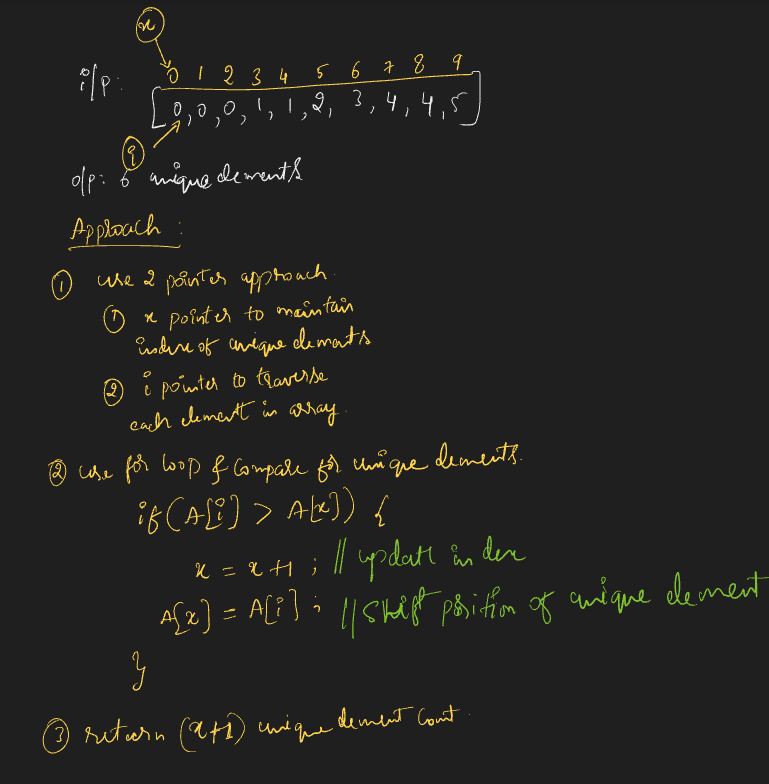 x
0 1 2 3 4 5 6 7 8 9
i/p: [0, 0, 0, 1, 1, 2, 3, 4, 4, 5]
i
o/p: 6 unique elements
Approach :
① use 2 pointer approach.
① x pointer to maintain
index of unique elements
② i pointer to traverse
each element in array.
② use for loop & compare for unique elements.
if(A[i] > A[x]) {
x = x+1 ; // update index
A[x] = A[i] ; // shift position of unique element
}
③ return (x+1) unique element count.